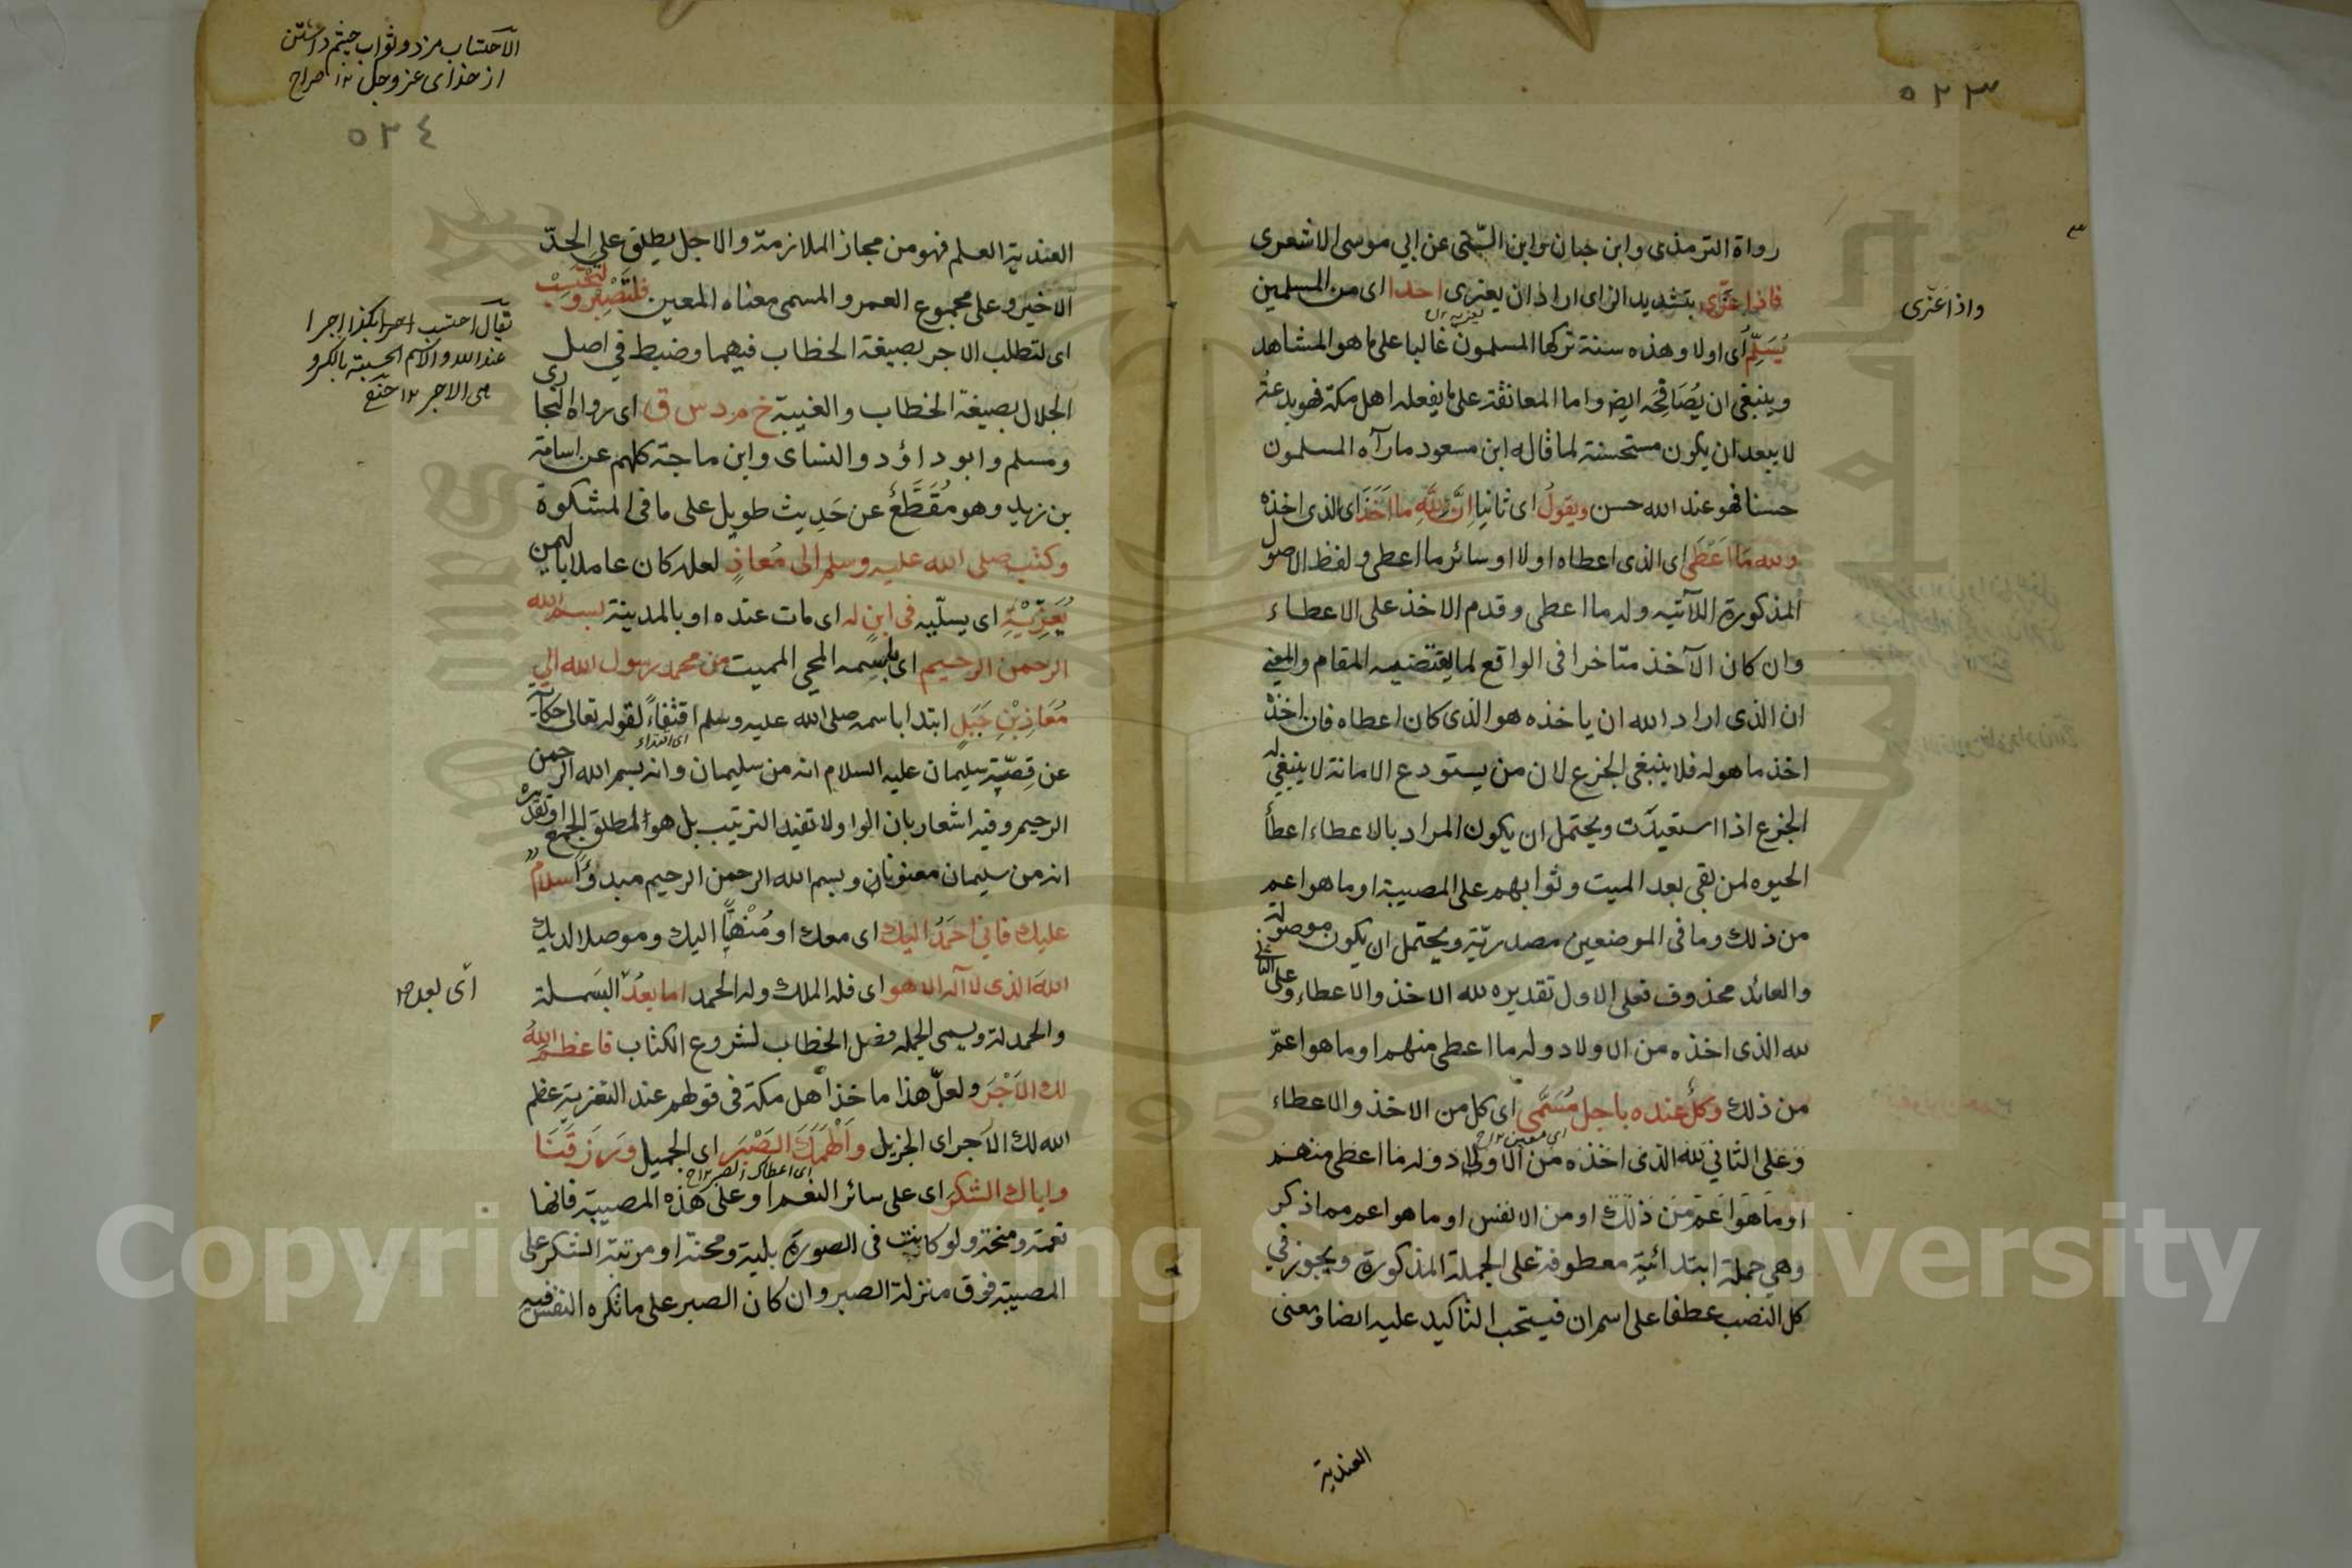 ٥٢٣
رواة الترمذي وابن حبان وابن السني عن ابي موسى الاشعرى
فاذا عزّى بتشديد الزاى اى اراد ان يعزى احدا اى من المسلمين
واذا عزّى
يُسَلِّم اى اولا وهذه سنة تركها المسلمون غالبا على ما هو المشاهد
وينبغى ان يُصَافِحَه ايض واما المعانقة على ما يفعله اهل مكة فهو بدعة
لا يبعد ان يكون مستحسنة لما قاله ابن مسعود مارآه المسلمون
حسنا فهو عند الله حسن ويقولُ اى ثانيا اِنَّ لِلّٰهِ ما اَخَذَ اى الذى اخذه
ولله مَا اَعْطَى اى الذى اعطاه اولا او سائر ما اعطى ولفظ الاصول
المذكورة اللآتيه وله ما اعطى وقدم الاخذ على الاعطاء
وان كان الآخذ متاخرا فى الواقع لما يقتضيه المقام والمعنى
ان الذى اراد الله ان ياخذه هو الذى كان اعطاه فان اخذه
اخذ ما هو له فلا ينبغى الجزع لان من يستودع الامانة لا ينبغى له
الجزع اذا استعيدت ويحتمل ان يكون المراد بالاعطاء اعطاء
الحيوه لمن بقى بعد الميت وثوابهم على المصيبة او ما هو اعم
من ذلك وما فى الموضعين مصدريّة ويحتمل ان يكون موصولة
والعائد محذوف فعلى الاول تقديره لله الاخذ والاعطاء وعلى الثانى
لله الذى اخذه من الاولاد وله ما اعطى منهم او ما هو اعمّ
من ذلك وكلٌ عنده باجل مُسَمًّى اى كل من الاخذ والاعطاء
اى معين
وعلى الثاني لله الذى اخذه من الاولاد وله ما اعطى منهم
او ما هو اعم من ذلك او من الانفس او ما هو اعم مما ذكر
وهي جملة ابتدائية معطوفة على الجملة المذكورة ويجوز في
كل النصب عطفا على اسم ان فيستحب التاكيد عليه ايضا ومعنى
العندية
الآحتساب مزد وثواب چشم داشتن
از خداى عزوجل ١٢ صراح
٥٢٤
العندية العلم فهو من مجاز الملازمة والاجل يطلق على الحدّ
الاخير وعلى مجموع العمر والمسمى معناه المعين فلتَصْبِر ولتَحْتَسِبْ
يقال احتسب اجرا بكذا اجرا
عند الله والاسم الحسبة بالكسر و
هى الاجر ١٢
اى لتطلب الاجر بصيغة الخطاب فيهما وضبط في اصل
الجلال بصيغة الخطاب والغيبة خ م د س ق اى رواه البخارى
ومسلم وابو داؤد والنساى وابن ماجة كلهم عن اسامة
بن زيد وهو مُقَطَّعٌ عن حَدِيث طويل على ما فى المشكوة
وكتب صلى الله عليه وسلم الى مُعاذٍ لعله كان عاملا باليمن
يُعَزِّيْهِ اى يسلّيه فى ابنٍ له اى مات عنده او بالمدينة بسم الله
الرحمن الرحيم اى باسمه المحى المميت من محمد رسول الله الي
مُعَاذِ بْنِ جَبَلٍ ابتدا باسمه صلى الله عليه وسلم اقتفاءً لقوله تعالى حكاية
اى اقتداء
عن قِصّةِ سليمان عليه السلام انه من سليمان وانه بسم الله الرحمن
الرحيم وفيه اشعار بان الواو لا تفيد الترتيب بل هو لمطلق الجمع او تقديره
انه من سليمان معنونان وبسم الله الرحمن الرحيم مبدؤا سلامٌ
عليك فاني احمَدُ اليك اى معك او مُنْهيًّا اليك وموصلا لديك
اللهَ الذى لا آله الا هو اى فله الملك وله الحمد اما بعدُ البَسملة
اى بعد
والحمدلة ويسمى الجمله فصل الخطاب لشروع الكتاب فاعظم اللهُ
لك الاَجْرَ ولعلّ هذا ماخذ اهل مكة فى قولهم عند التعزية عظم
الله لك الاَجر اى الجزيل واَلْهَمَكَ الصَبْرَ اى الجميل ورَزَقَنَا
اى اعطاك الصبر
واياك الشكرَ اى على سائر النعم او على هذه المصيبة فانها
نعمة ومنحة ولو كانت فى الصورة بلية ومحنة او مرتبة الشكر على
المصيبة فوق منزلة الصبر وان كان الصبر على ما تكره النفس فيه
Copyright © King Saud University
1957